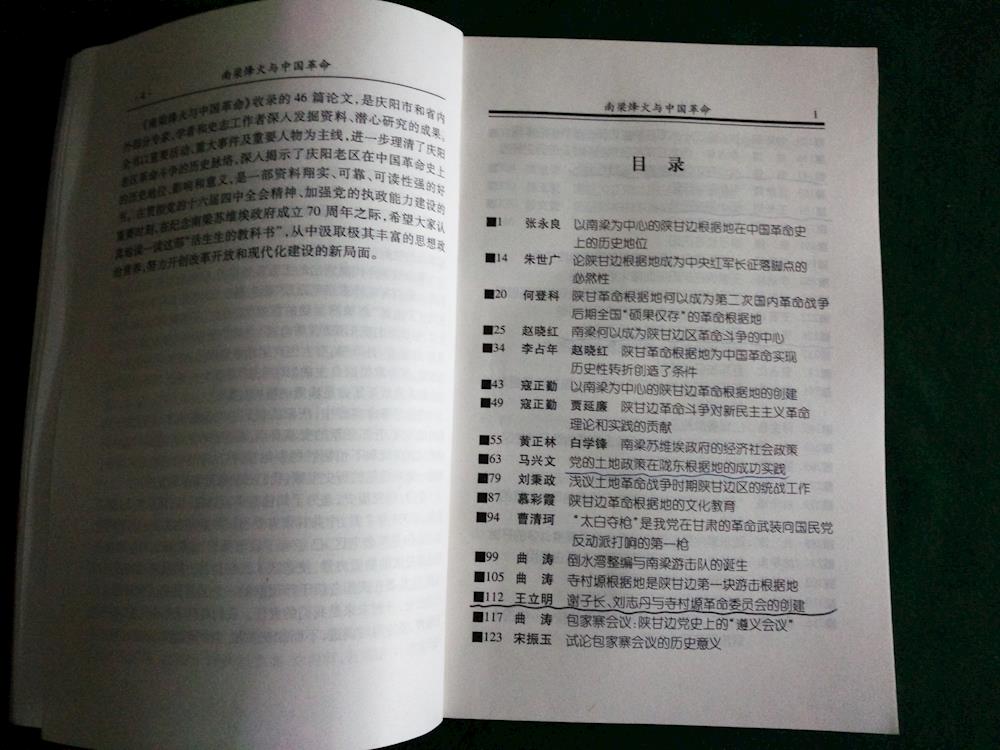 南梁烽火与中国革命
·4·
《南梁烽火与中国革命》收录的46篇论文,是庆阳市和省内
外部分专家、学者和史志工作者深入发掘资料、潜心研究的成果。
全书以重要活动、重大事件及重要人物为主线,进一步理清了庆阳
老区革命斗争的历史脉络,深入揭示了庆阳老区在中国革命史上
的历史地位、影响和意义,是一部资料翔实、可靠、可读性强的好
书。在贯彻党的十六届四中全会精神、加强党的执政能力建设的
重要时刻,在纪念南梁苏维埃政府成立70周年之际,希望大家认
真地读一读这部“活生生的教科书”,从中汲取极其丰富的思想政
治营养,努力开创改革开放和现代化建设的新局面。
南梁烽火与中国革命 1
目录
■1 张永良 以南梁为中心的陕甘边根据地在中国革命史
上的历史地位
■14 朱世广 论陕甘边根据地成为中央红军长征落脚点的
必然性
■20 何登科 陕甘革命根据地何以成为第二次国内革命战争
后期全国“硕果仅存”的革命根据地
■25 赵晓红 南梁何以成为陕甘边区革命斗争的中心
■34 李占年 赵晓红 陕甘革命根据地为中国革命实现
历史性转折创造了条件
■43 寇正勤 以南梁为中心的陕甘边革命根据地的创建
■49 寇正勤 贾延廉 陕甘边革命斗争对新民主主义革命
理论和实践的贡献
■55 黄正林 白学锋 南梁苏维埃政府的经济社会政策
■63 马兴文 党的土地政策在陇东根据地的成功实践
■79 刘秉政 浅议土地革命战争时期陕甘边区的统战工作
■87 慕彩霞 陕甘边革命根据地的文化教育
■94 曹清珂 “太白夺枪”是我党在甘肃的革命武装向国民党
反动派打响的第一枪
■99 曲涛 倒水湾整编与南梁游击队的诞生
■105 曲涛 寺村塬根据地是陕甘边第一块游击根据地
■112 王立明 谢子长、刘志丹与寺村塬革命委员会的创建
■117 曲涛 包家寨会议:陕甘边党史上的“遵义会议”
■123 宋振玉 试论包家寨会议的历史意义